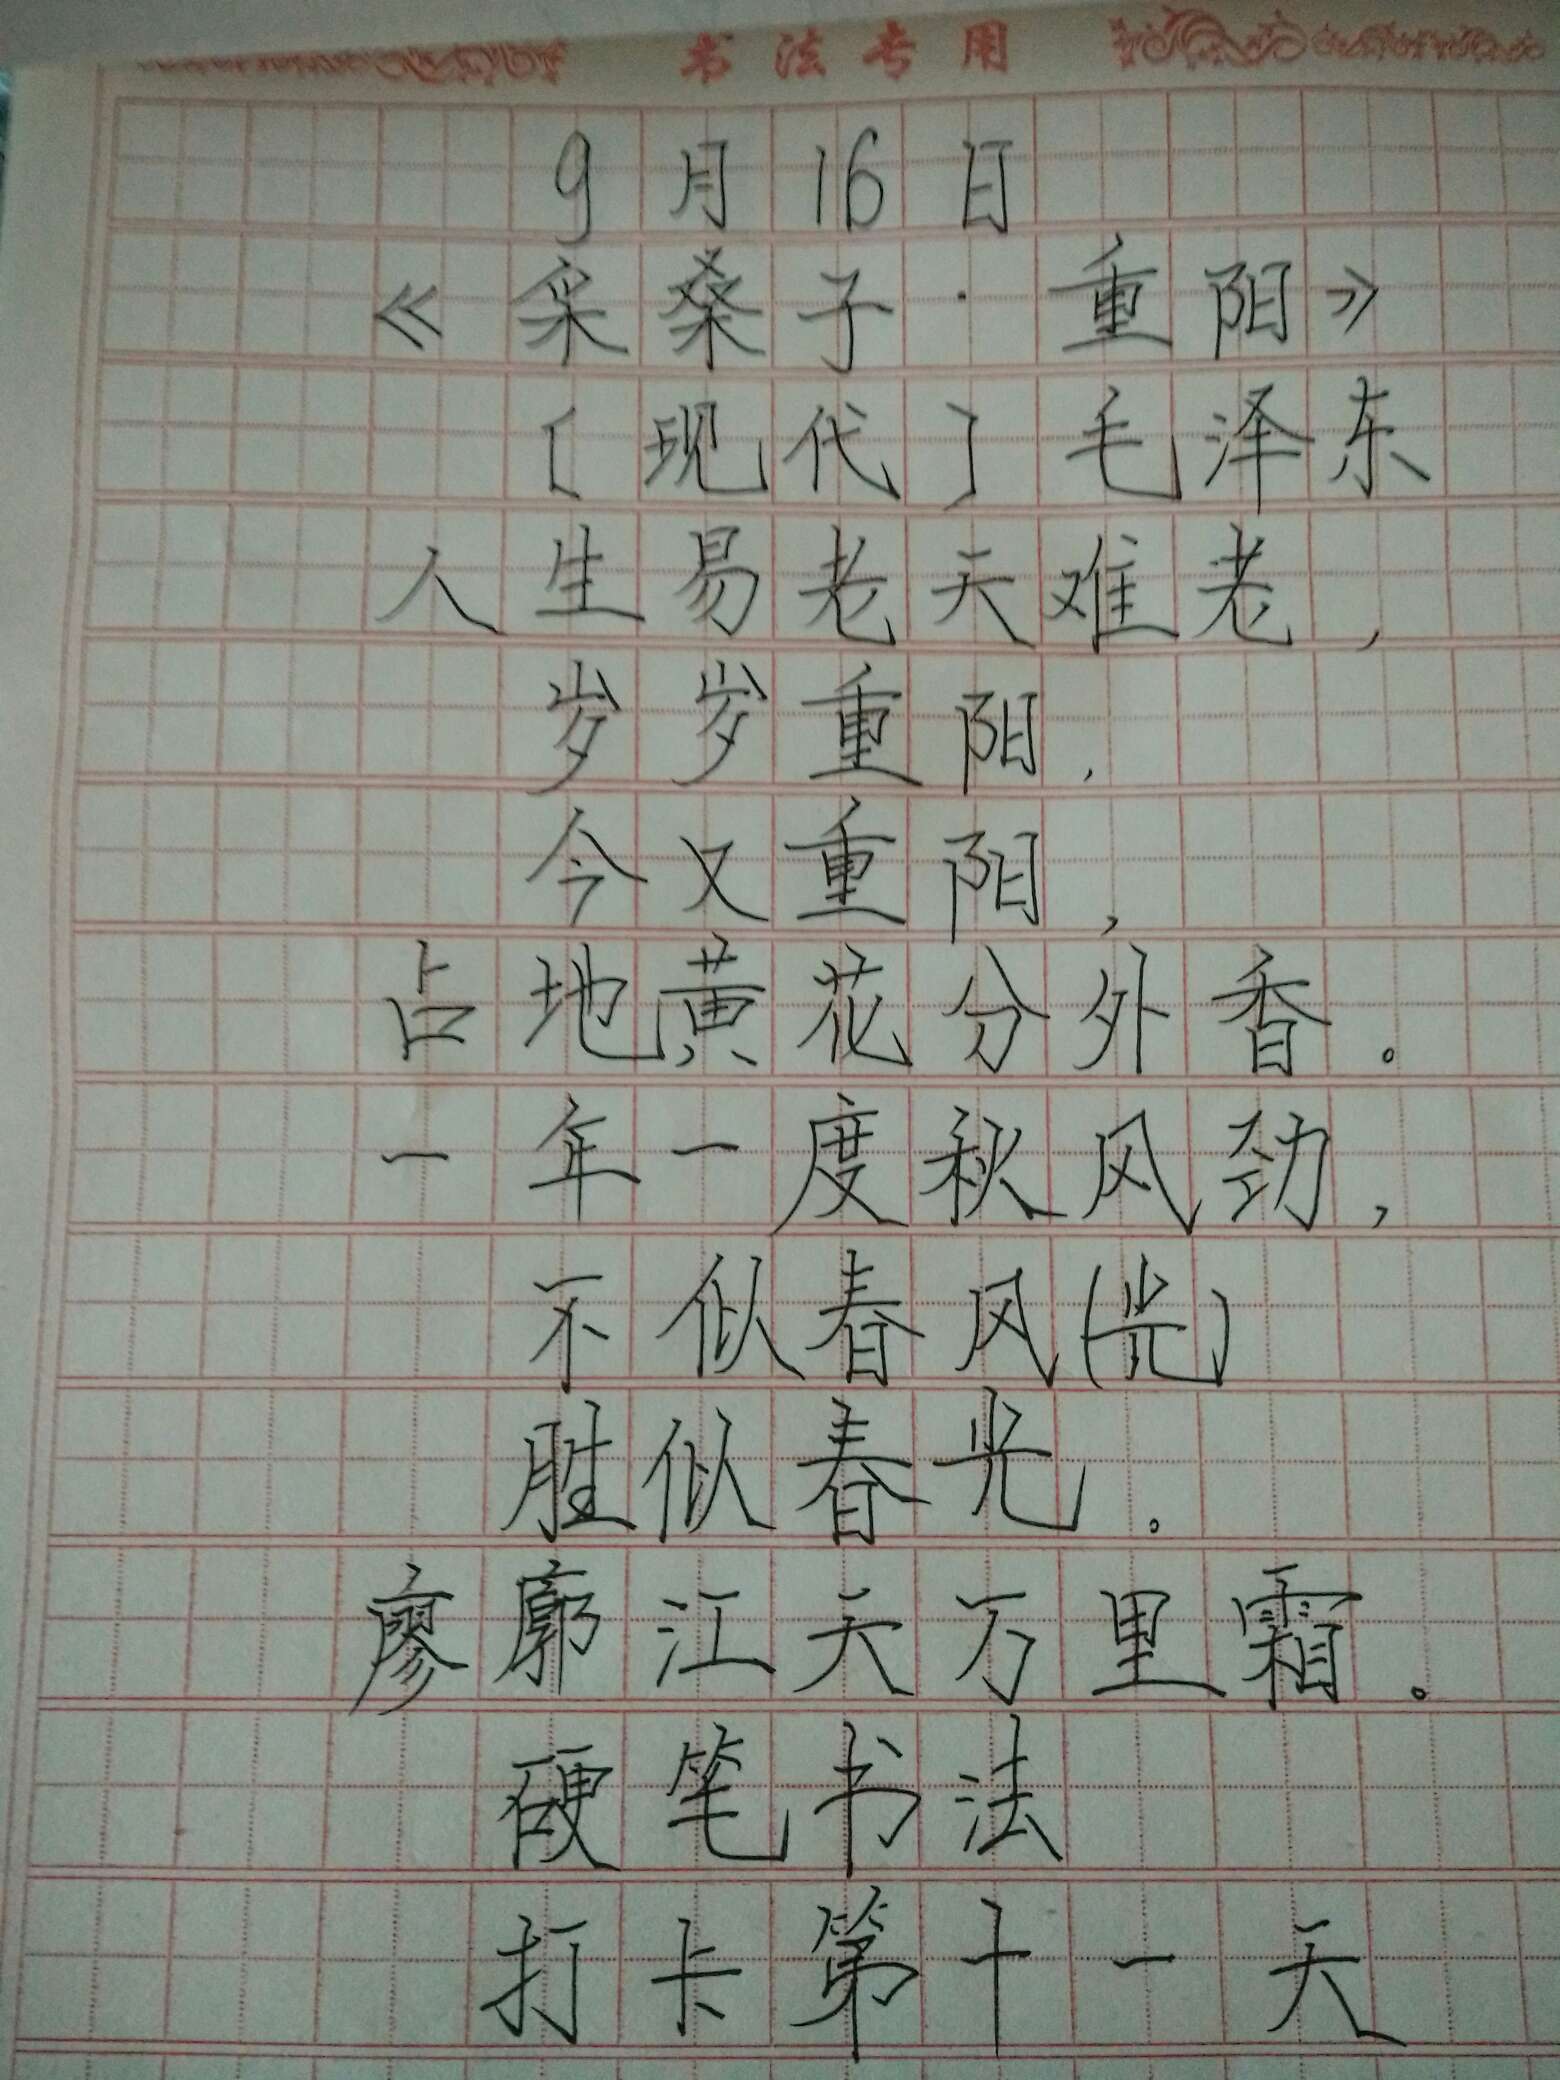 书法专用
9月16日
《采桑子·重阳》
[现代]毛泽东
人生易老天难老,
岁岁重阳.
今又重阳,
占地黄花分外香。
一年一度秋风劲,
不似春风(光)
胜似春光。
廖廓江天万里霜。
硬笔书法
打卡第十一天